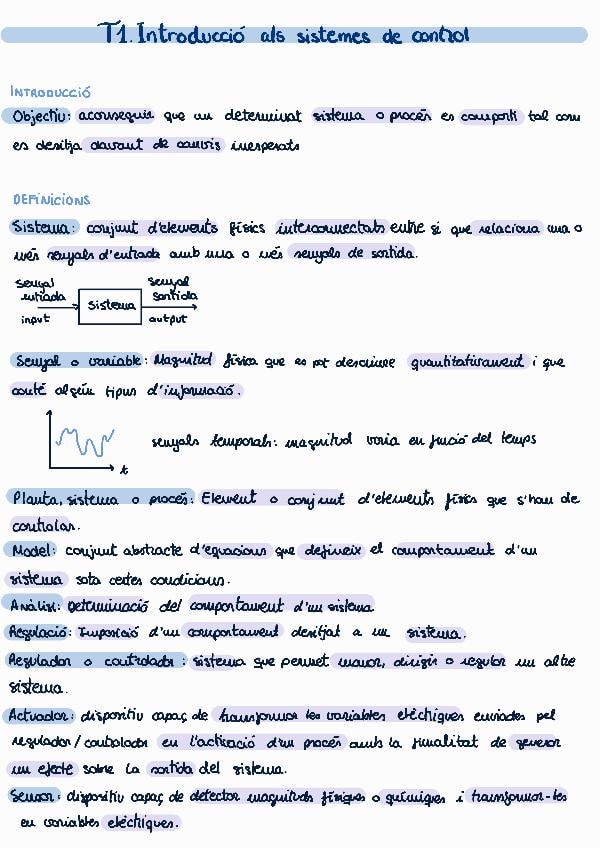 T1. Introducció als sistemes de control
INTRODUCCIÓ
Objectiu: aconseguir que un determinat sistema o procés es comporti tal com
es desitja davant de canvis inesperats
DEFINICIONS
Sistema: conjunt d'elements físics interconnectats entre si que relaciona una o
més senyals d'entrada amb una o més senyals de sortida.
senyal
entrada
input
sistema
senyal
sortida
output
Senyal o variable: Magnitud física que es pot descriure quantitativament i que
conté algún tipus d'informació.
t
senyals temporals: magnitud varia en funció del temps
Planta, sistema o procés: Element o conjunt d'elements físics que s'han de
controlar.
Model: conjunt abstracte d'equacions que defineix el comportament d'un
sistema sota certes condicions.
Anàlisi: Determinació del comportament d'un sistema
Regulació: Imposició d'un comportament desitjat a un sistema.
Regulador o controlador: sistema que permet manar, dirigir o regular un altre
sistema.
Actuador: dispositiu capaç de transformar les variables elèctriques enviades pel
regulador/controlador en l'activació d'un procés amb la finalitat de generar
un efecte sobre la sortida del sistema.
Sensor: dispositiu capaç de detectar magnituds físiques o químiques i transformar-les
en variables elèctriques.